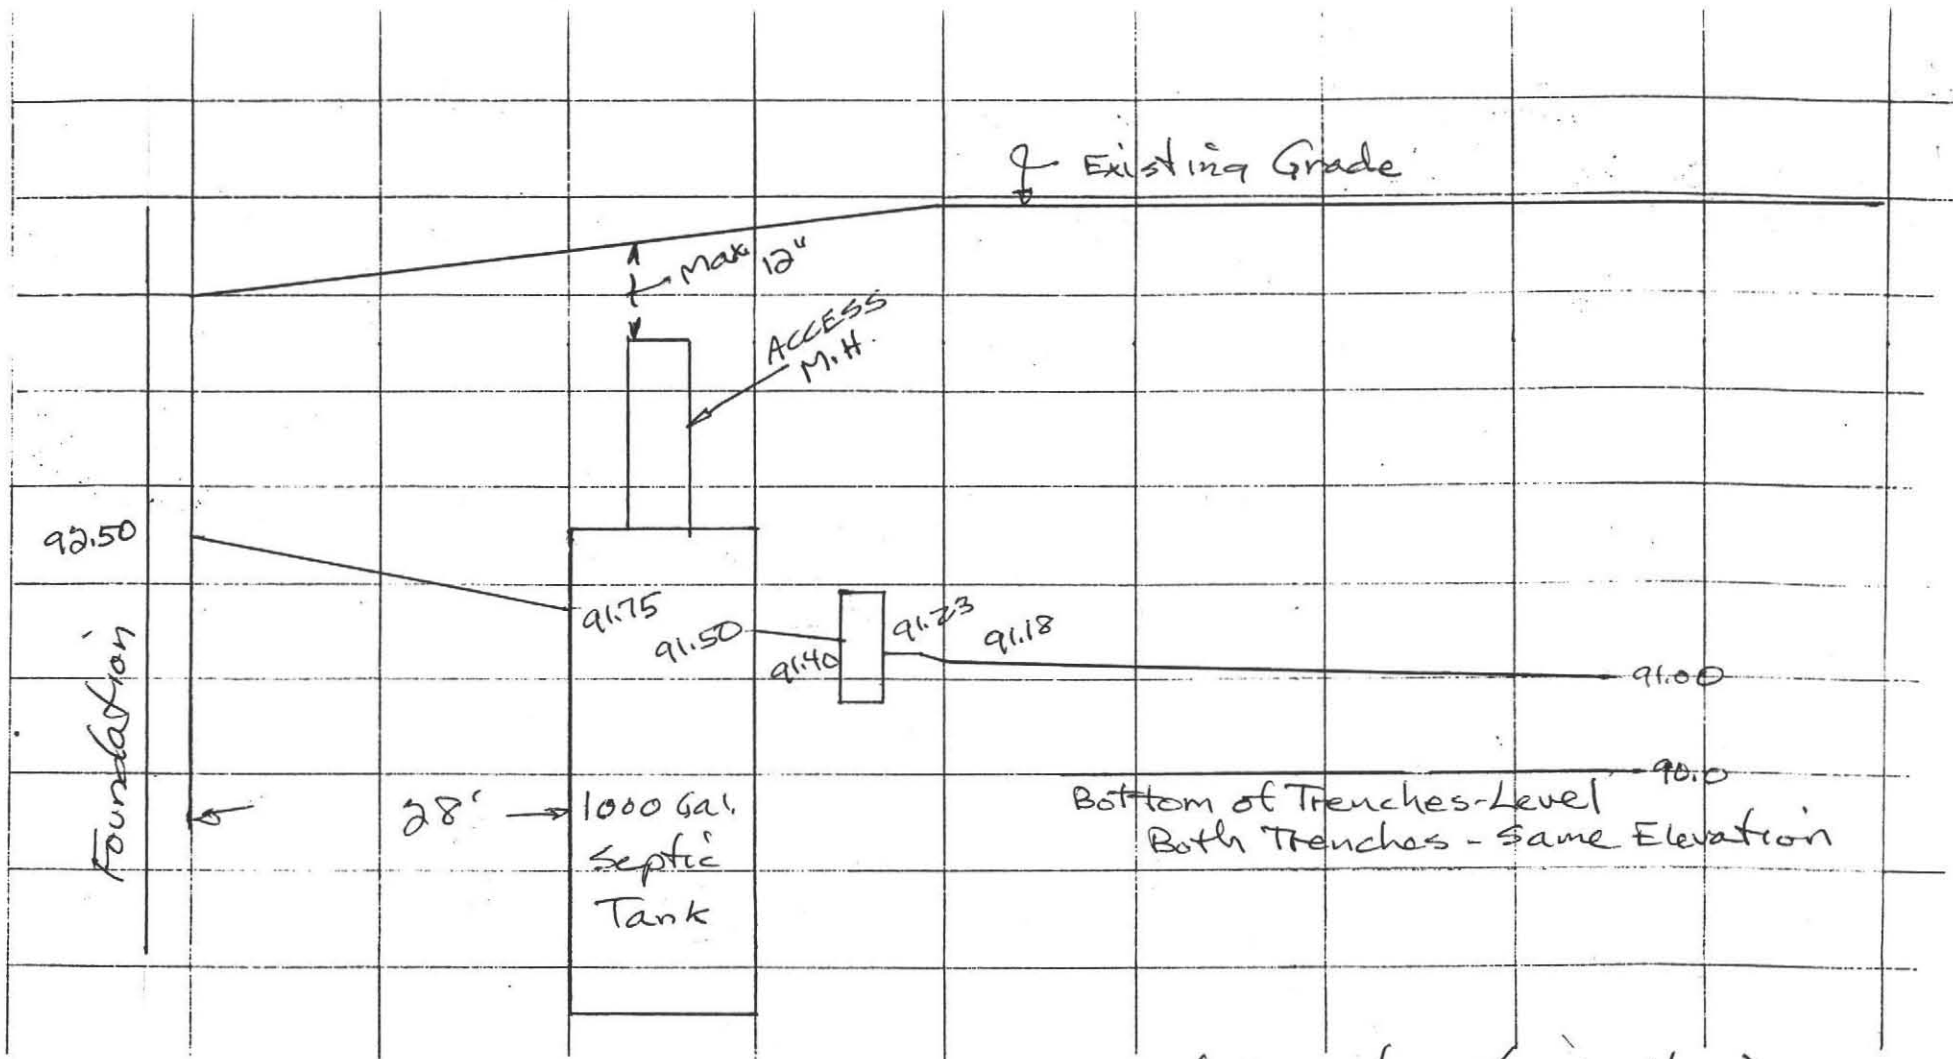 Existing Grade
Max.
12"
ACCESS
M.H.
92.50
91.75
91.50
91.40
91.23
91.18
91.00
90.0
Foundation
28'
1000 Gal.
Septic
Tank
Bottom of Trenches-Level
Both Trenches - Same Elevation